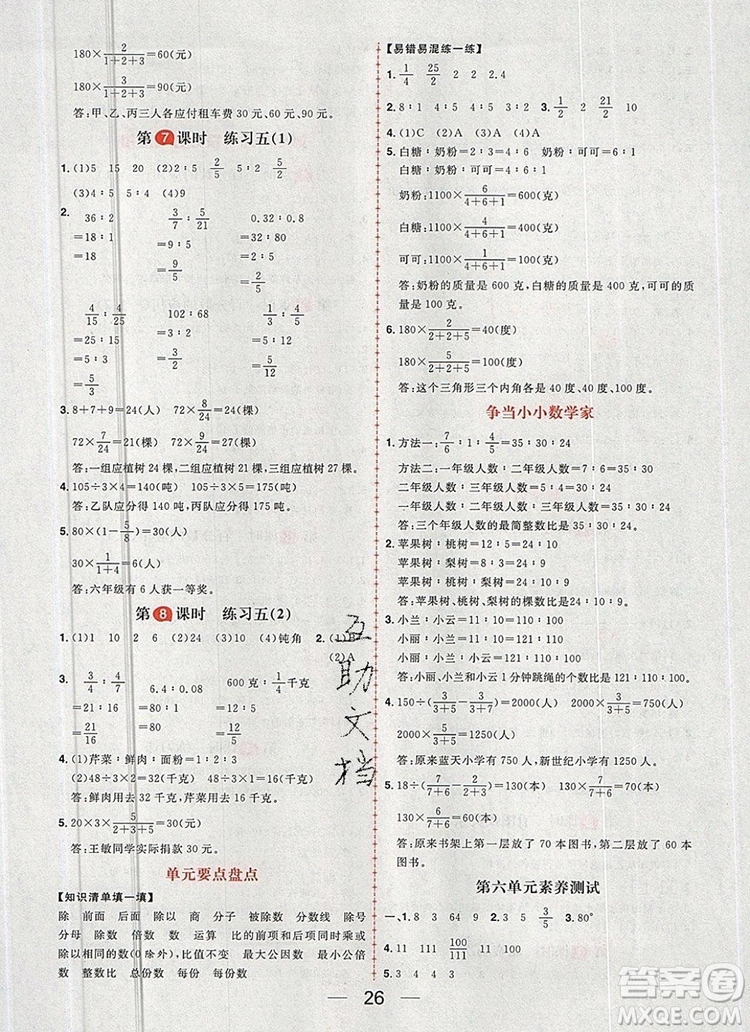 180×2/(1+2+3)=60(元)
180×3/(1+2+3)=90(元)
答:甲、乙、丙三人各应付租车费 30 元、60 元、90 元。
第7课时 练习五(1)
1. (1)5 15 20 (2)7∶5 5∶7 5∶2
(3)4∶5 5∶4
2. 36∶2 3/7∶5/21 0.32∶0.08
=18∶1 =9∶5 =32∶8
=18 =9/5 =4
4/15∶4/25 102∶68 3/10∶1/5
=25∶15 =3∶2 =3∶2
=5∶3 =3/2 =3/2
=5/3
3. 8+7+9=24(人) 72×8/24=24(棵)
72×7/24=21(棵) 72×9/24=27(棵)
答:一组应植树 24 棵,二组应植树 21 棵,三组应植树 27 棵。
4. 105÷3×4=140(吨) 105÷3×5=175(吨)
答:乙队应分得 140 吨,丙队应分得 175 吨。
5. 80×(1-5/8)=30(人)
30×1/(1+4)=6(人)
答:六年级有 6 人获一等奖。
第8课时 练习五(2)
1. (1)1 10 2 6 (2)24 (3)150 (4)钝角 2. (1)B
(2)A
3. 3/4∶4/7 6.4∶0.08 600 克∶1/4千克
=21∶16 =80∶1 =12∶5
=21/16 =80 =12/5
4. (1)芹菜∶鲜肉∶面粉=1∶2∶3
(2)48÷3×2=32(千克) 48÷3×1=16(千克)
答:鲜肉用去 32 千克,芹菜用去 16 千克。
5. 20×3×5/(2+3+5)=30(元)
答:王敏同学实际捐款 30 元。
单元要点盘点
【知识清单填一填】
除 前面 后面 除以 商 分子 被除数 分数线 除号
分母 除数 倍数 数 运算 比的前项和后项同时乘或
除以相同的数(0除外),比值不变 最大公因数 最小公倍
数 整数比 总份数 每份 每份数
【易错易混练一练】
1. 1/4 25/2 2 2 2.4
2. 8∶1 4∶5 4∶3 2∶5 3. 1/10 21/25 8 2
4. (1)C (2)A (3)A
5. 白糖∶奶粉=2∶3=4∶6 奶粉∶可可=6∶1
白糖∶奶粉∶可可=4∶6∶1
奶粉:1100×6/(4+6+1)=600(克)
白糖:1100×4/(4+6+1)=400(克)
可可:1100×1/(4+6+1)=100(克)
答:奶粉的质量是 600 克,白糖的质量是 400 克,
可可的质量是 100 克。
6. 180×2/(2+2+5)=40(度)
180×5/(2+2+5)=100(度)
答:这个三角形三个内角各是 40 度、40 度、100度。
争当小小数学家
1. 方法一:7/6∶1∶4/5=35∶30∶24
方法二:一年级人数∶二年级人数=7∶6=35∶30
二年级人数∶三年级人数=5∶4=30∶24
一年级人数∶二年级人数∶三年级人数=35∶30∶24
答:三个年级人数的最简整数比是 35∶30∶24。
2. 苹果树∶桃树=1∶2=15∶30
桃树∶梨树=3∶5=30∶50
苹果树∶桃树∶梨树=15∶30∶50=3∶6∶10
答:苹果树、桃树、梨树的棵数比是 3∶6∶10。
3. 小兰∶小云=11∶10=110∶100
小丽∶小兰=11∶10=121∶110
小丽∶小兰∶小云=121∶110∶100
答:小丽、小兰和小云1 分钟跳绳的个数比是 121∶110∶100。
4. 150÷(3/(3+5)-3/10)=2000(人) 2000×3/(3+5)=750(人)
2000×5/(3+5)=1250(人)
答:原来蓝天小学有 750 人,新世纪小学有 1250 人。
5. 18÷(7/(7+6)-2/5)=130(本) 130×7/(7+6)=70(本)
130×6/(7+6)=60(本)
答:原来书架上第一层放了 70 本图书,第二层放了 60 本
图书。
第六单元素养测试
一、1. 8 3 64 9 2. 3 5 3/5 3. 80°
4. 11 111 100/111 11/111
5. 3 4 4 3
互助文档
26
答案圈
MXQE.COM